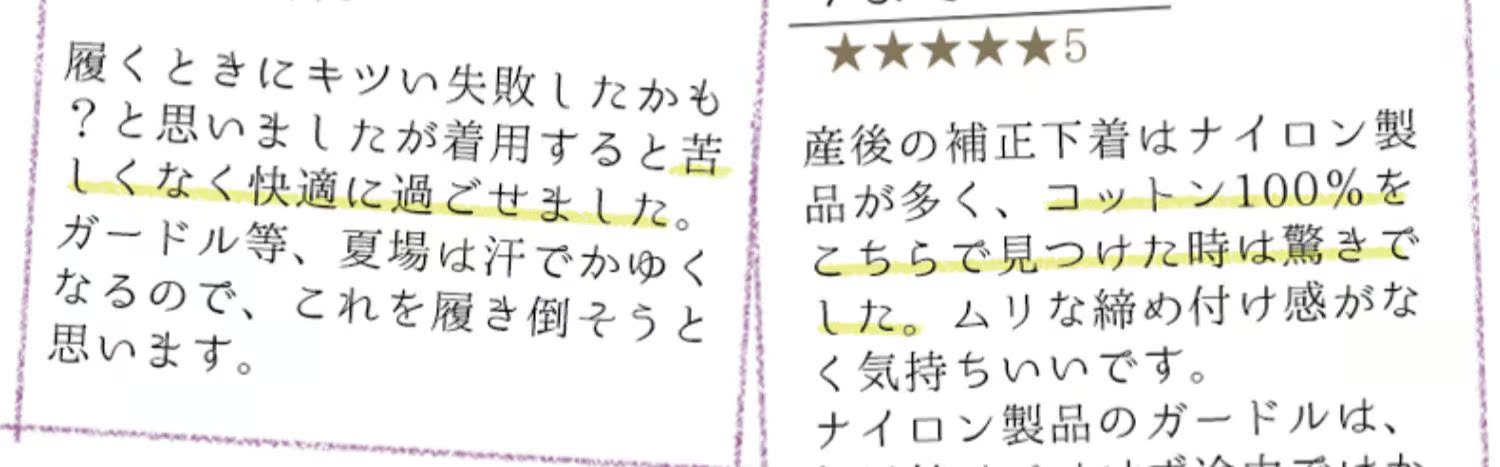 履くときにキツい失敗したかも
？と思いましたが着用すると苦
しくなく快適に過ごせました。
ガードル等、夏場は汗でかゆく
なるので、これを履き倒そうと
思います。
★★★★★5
産後の補正下着はナイロン製
品が多く、コットン100%を
こちらで見つけた時は驚きで
した。ムリな締め付け感がな
く気持ちいいです。
ナイロン製品のガードルは、